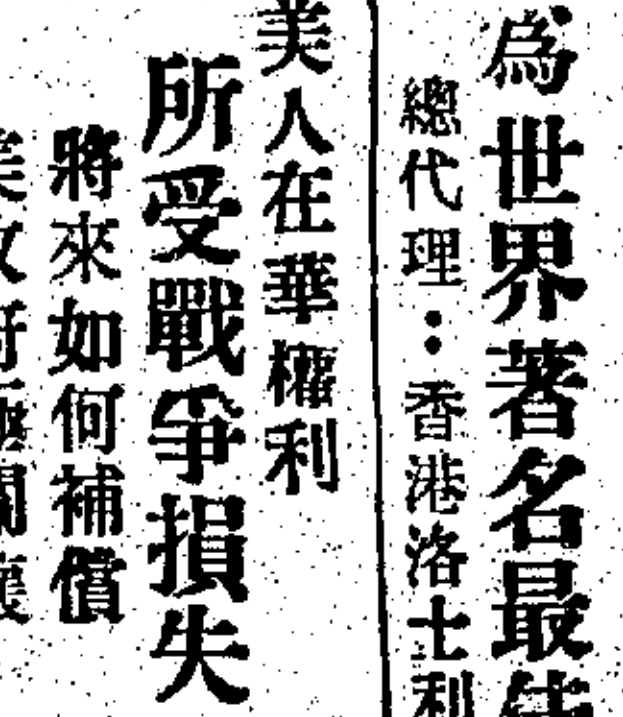 為世界著名最佳
總代理：香港洛士利
美人在華權利
所受戰爭損失
將來如何補償